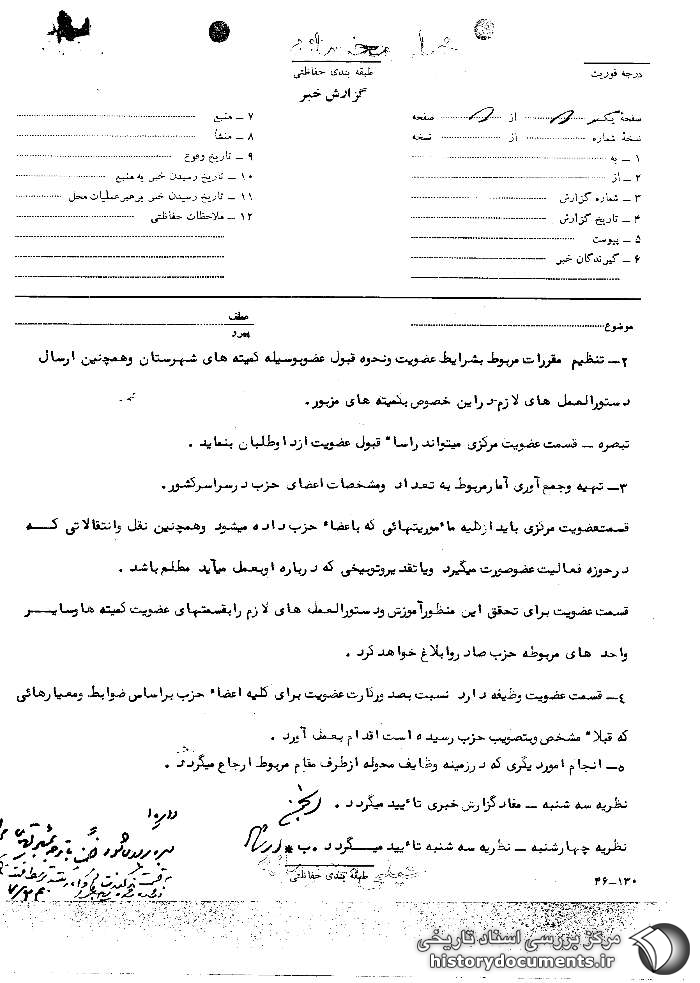 طبقه بندی حفاظتی
درجه فوریت
گزارش خبر
صفحهٔ یک از صفحه
نسخهٔ شماره از نسخه
۱ ــ به
۲ ــ از
۳ ــ شماره گزارش
۴ ــ تاریخ گزارش
۵ ــ پیوست
۶ ــ گیرندگان خبر
۷ ــ منبع
۸ ــ منشأ
۹ ــ تاریخ وقوع
۱۰ ــ تاریخ رسیدن خبر به منبع
۱۱ ــ تاریخ رسیدن خبر برهبر عملیات محل
۱۲ ــ ملاحظات حفاظتی
موضوع
عطف
پیرو
۲ــ تنظیم مقررات مربوط بشرایط عضویت ونحوه قبول عضوبوسیله کمیته های شهرستان وهمچنین ارسال
دستورالعمل های لازم دراین خصوص بکمیته های مزبور.
تبصره ــ قسمت عضویت مرکزی میتواند راسا" قبول عضویت ازداوطلبان بنماید .
۳ــ تهیه وجمع آوری آمارمربوط به تعداد ومشخصات اعضای حزب درسراسرکشور.
قسمتعضویت مرکزی بایدازکلیه مأموریتهائی که باعضاء حزب داده میشود وهمچنین نقل وانتقالاتی کــه
درحوزه فعالیت عضوصورت میگیرد ویاتقدیروتوبیخی که درباره اوبعمل میآید مطلع باشد .
قسمت عضویت برای تحقق این منظورآموزش ودستورالعمل های لازم رابقسمتهای عضویت کمیته هاوسایــر
واحد های مربوطه حزب صادروابلاغ خواهدکرد .
٤ــ قسمت عضویت وظیفه دارد نسبت بصدورکارت عضویت برای کلیه اعضاء حزب براساس ضوابط ومعیارهائی
که قبلا" مشخص وبتصویب حزب رسیده است اقدام بعمل آورد .
۵ــ انجام اموردیگری که درزمینه وظایف محوله ازطرف مقام مربوط ارجاع میگردد .
نظریه سه شنبه ــ مفادگزارش خبری تائید میگردد .
نظریه چهارشنبه ــ نظریه سه شنبه تائید میــگردد .ب*
طبقه بندی حفاظتی
۳۶-۱۳۰
مرکز بررسی اسناد تاریخی
historydocuments.ir